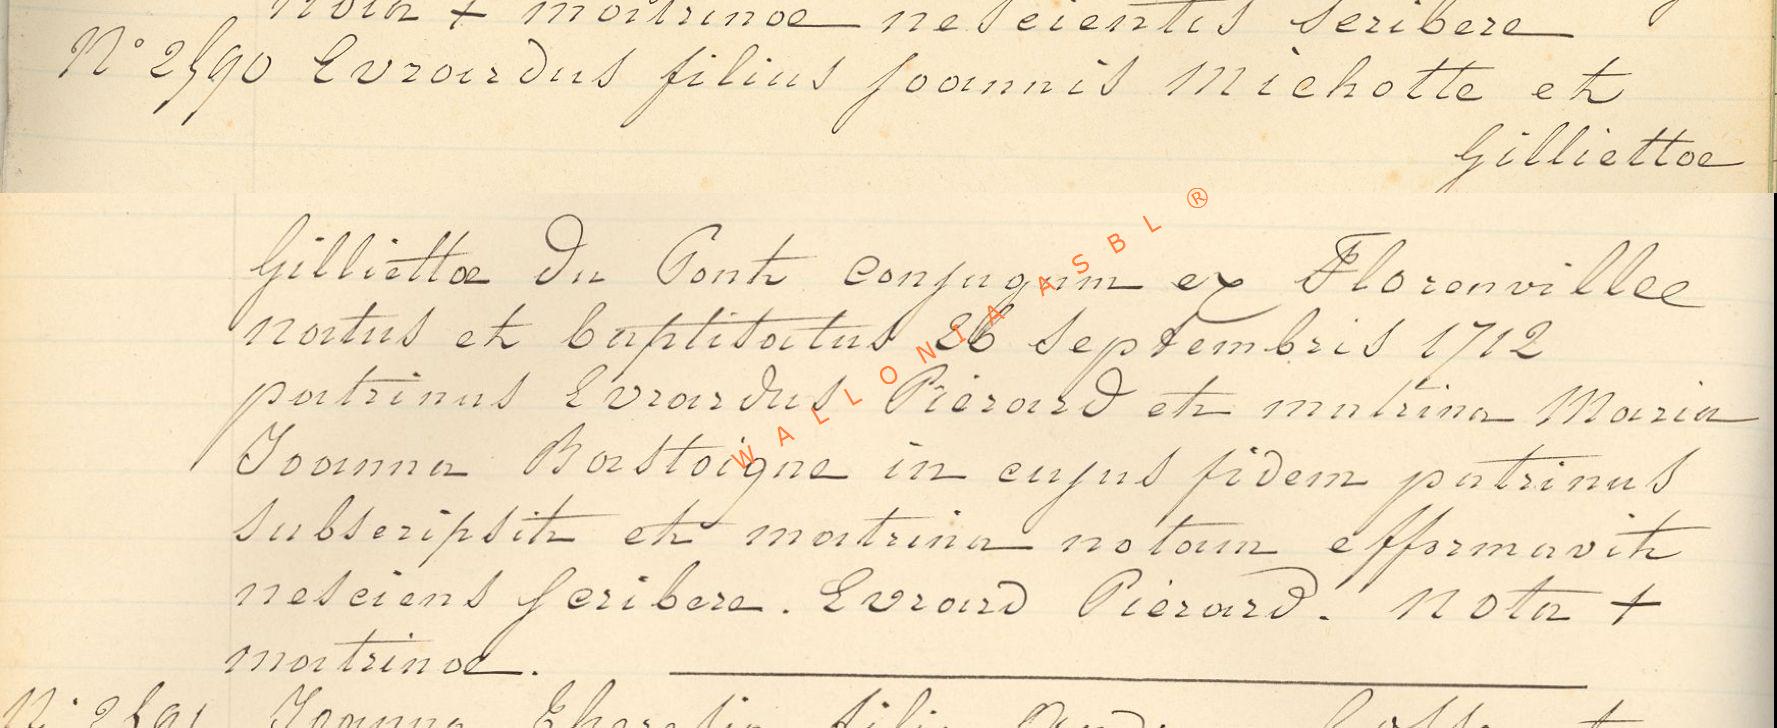 nota + matrinae nescientis scribere
N° 2590 Evrardus filius Joannis Michotte et
Gilliettae
Gilliettae du Pont conjugum ex Florenvillee
natus et baptisatus 26 septembris 1712
patrinus Evrardus Pierard et matrina Maria
Joanna Bastoigne in cujus fidem patrinus
subscripsit et matrina notam efformavit
nesciens scribere. Evrard Pierard. nota +
matrinae.
Joanna filia
WALLONIA ASBL ®